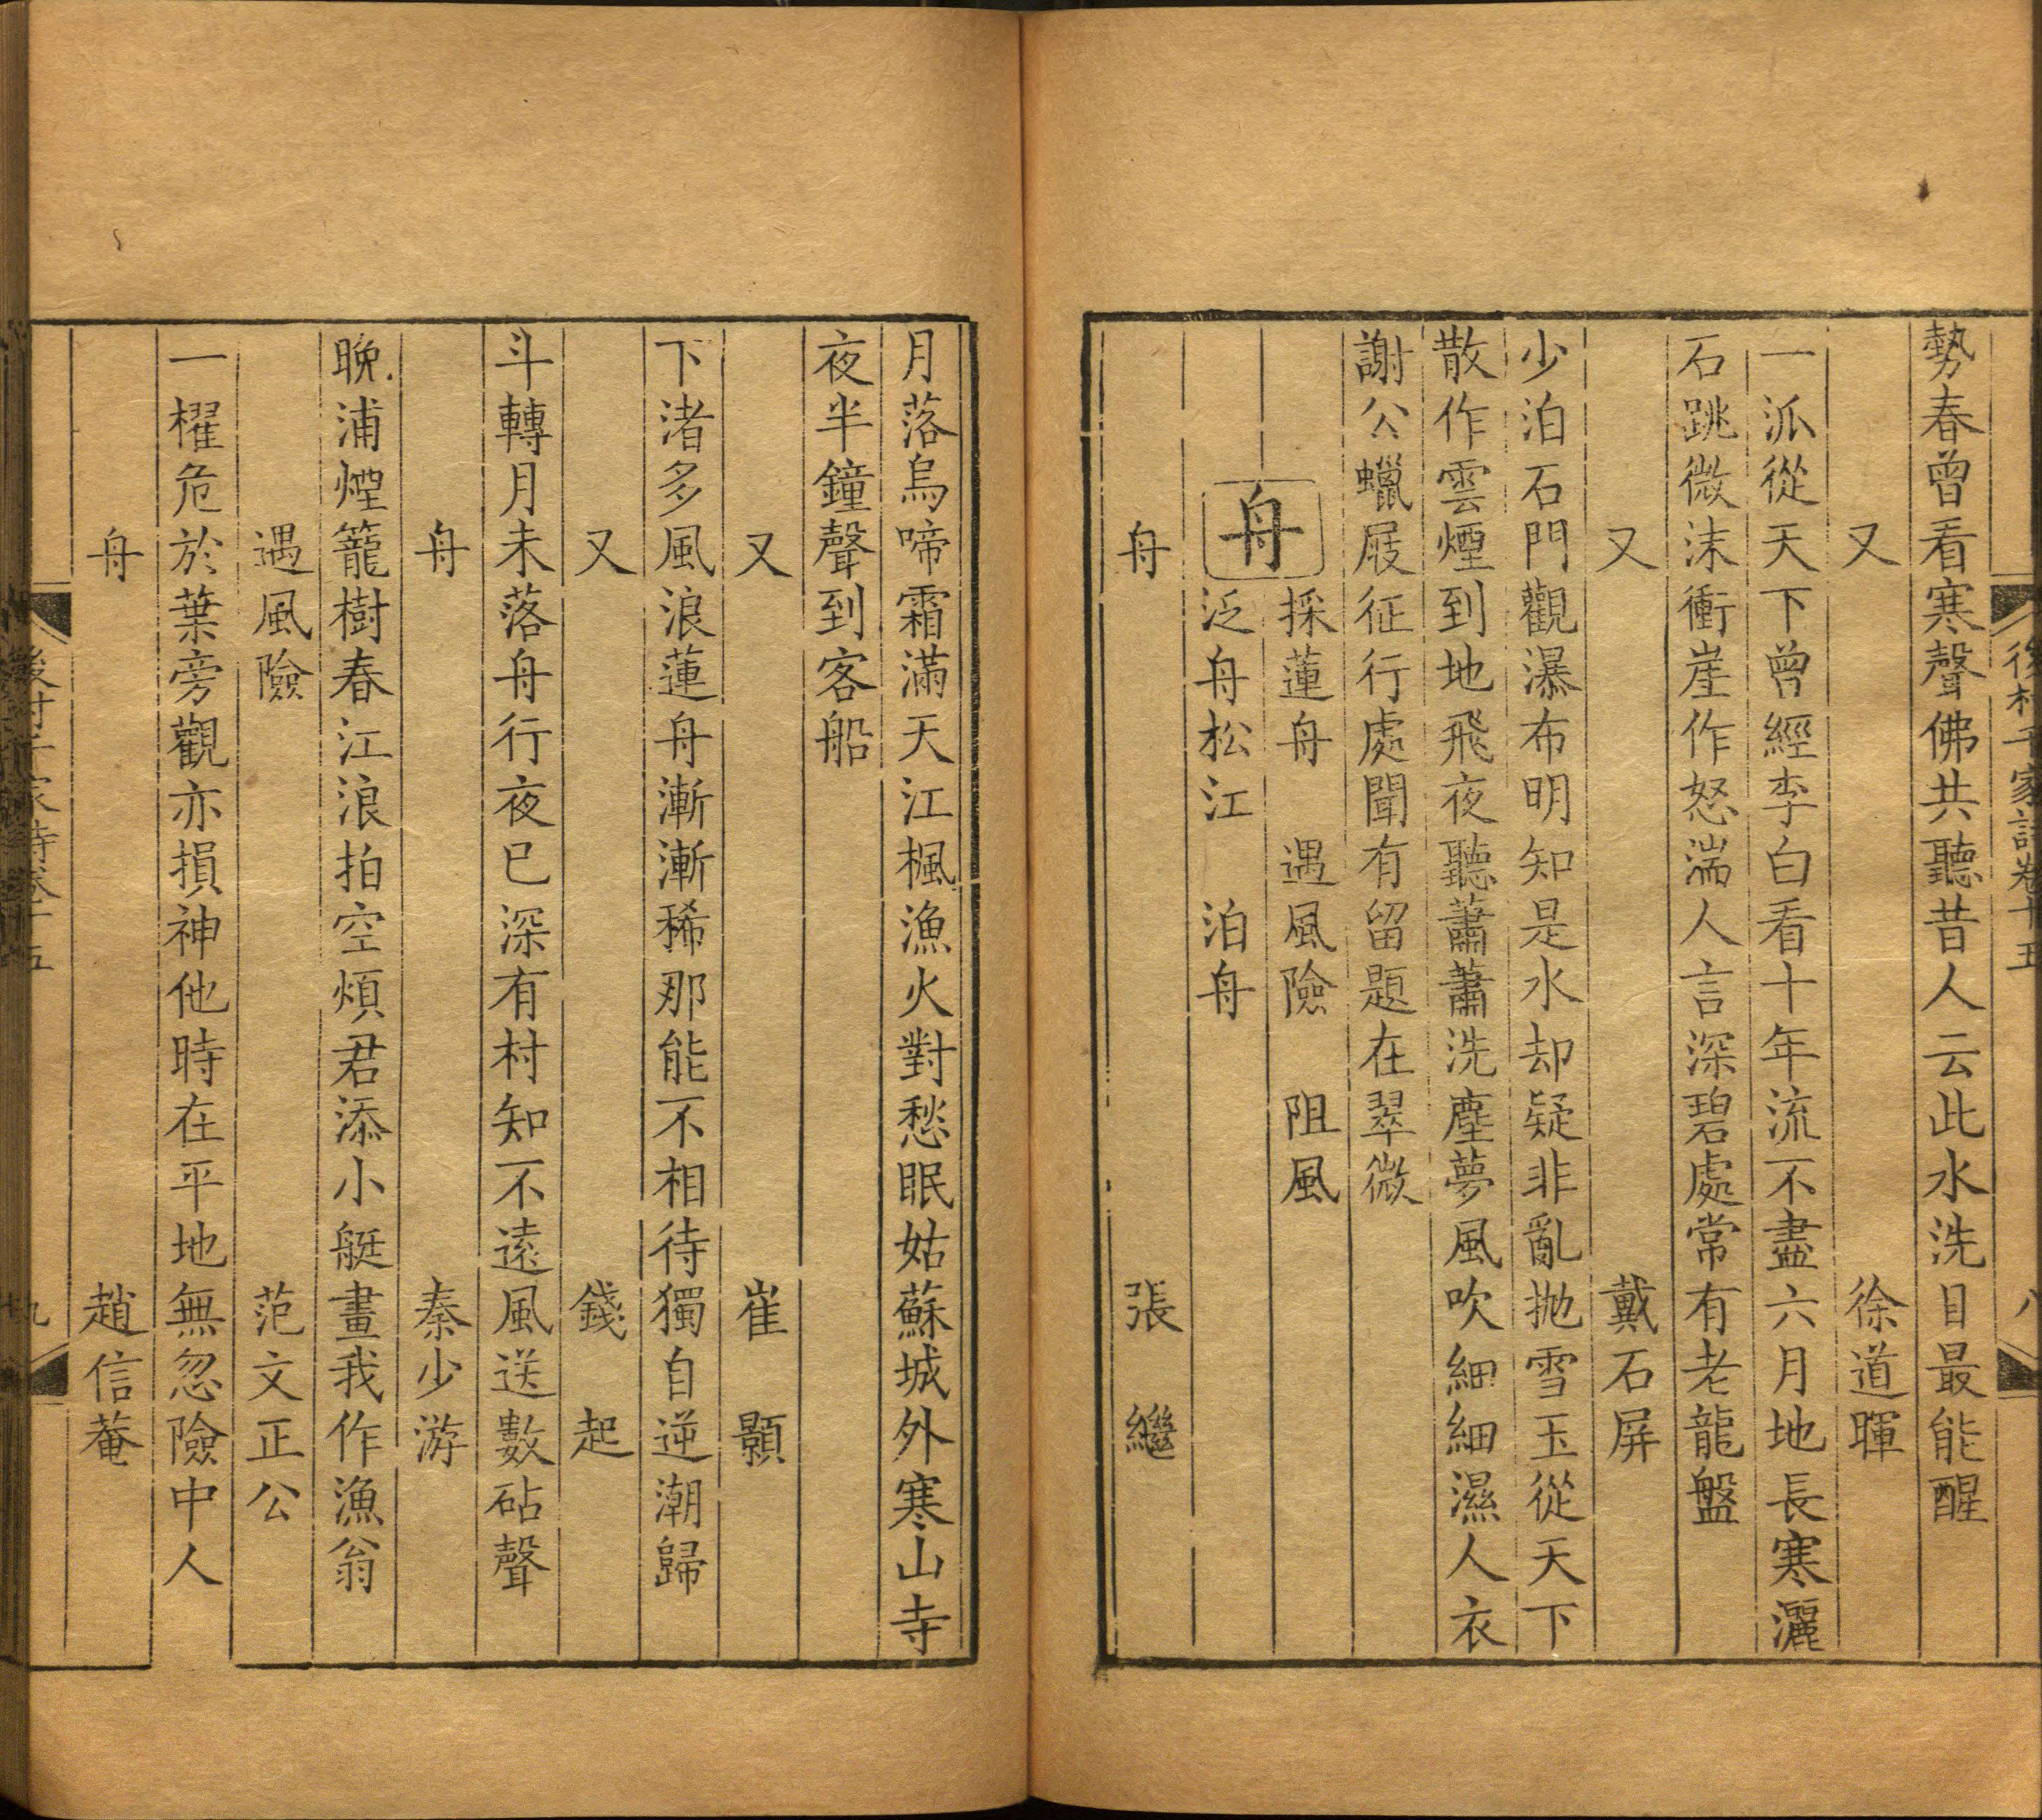 後村千家詩卷十五 八
勢春曾看寒聲佛共聽昔人云此水洗目最能醒
又 徐道暉
一派從天下曾經李白看十年流不盡六月地長寒灑
石跳微沫衝崖作怒湍人言深碧處常有老龍盤
又 戴石屏
少泊石門觀瀑布明知是水却疑非亂抛雪玉從天下
散作雲煙到地飛夜聽蕭蕭洗塵夢風吹細細濕人衣
謝公蠟屐征行處聞有留題在翠微
舟
採蓮舟 遇風險 阻風
泛舟松江 泊舟
舟 張繼
月落烏啼霜滿天江楓漁火對愁眠姑蘇城外寒山寺
夜半鐘聲到客船
又 崔顥
下渚多風浪蓮舟漸漸稀那能不相待獨自逆潮歸
又 錢起
斗轉月未落舟行夜已深有村知不遠風送數砧聲
舟 秦少游
晚浦煙籠樹春江浪拍空煩君添小艇畫我作漁翁
遇風險 范文正公
一櫂危於葉旁觀亦損神他時在平地無忽險中人
舟 趙信菴
後村千家詩卷十五 九